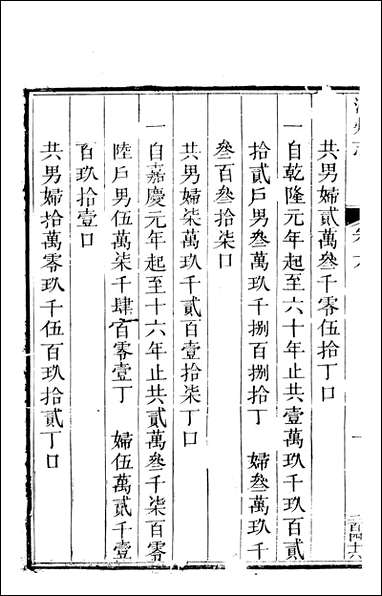 共男婦貳萬叄千零伍拾丁口
一自乾隆元年起至六十年止共壹萬玖千玖百貳
拾貳戶男叄萬玖千捌百捌拾丁　婦叄萬玖千
叄百叄拾柒口
共男婦柒萬玖千貳百壹拾柒丁口
一自嘉慶元年起至十六年止共貳萬叄千柒百零
陸戶男伍萬柒千肆百零壹丁　婦伍萬貳千壹
百玖拾壹口
共男婦拾萬零玖千伍百玖拾貳丁口
二百四十六